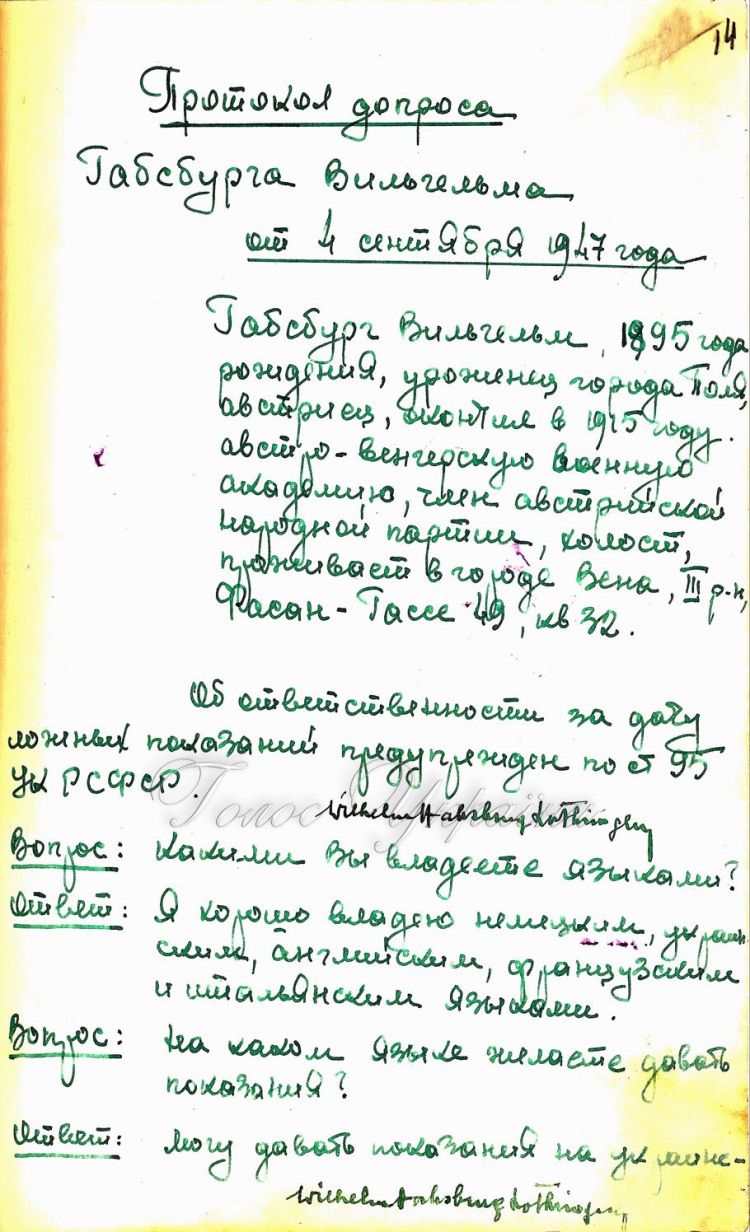 14
Протокол допроса
Габсбурга Вильгельма
от 4 сентября 1947 года
Габсбург Вильгельм, 1895 года
рождения, уроженец города Поля,
австриец, окончил в 1915 году.
австро-венгерскую военную
академию, член австрийской
народной партии, холост,
проживает в городе Вена, III р-н,
Фасан-Гассе 49, кв 32.
Об ответственности за дачу
ложных показаний предупрежден по ст 95
УК РСФСР.
Голос України
Wilhelm Habsburg Lothringen
Вопрос: Какими Вы владеете языками?
Ответ: Я хорошо владею немецким, украин-
ским, английским, французским
и итальянским языками.
Вопрос: На каком языке желаете давать
показания?
Ответ: Могу давать показания на украинс-
Wilhelm Habsburg Lothringen